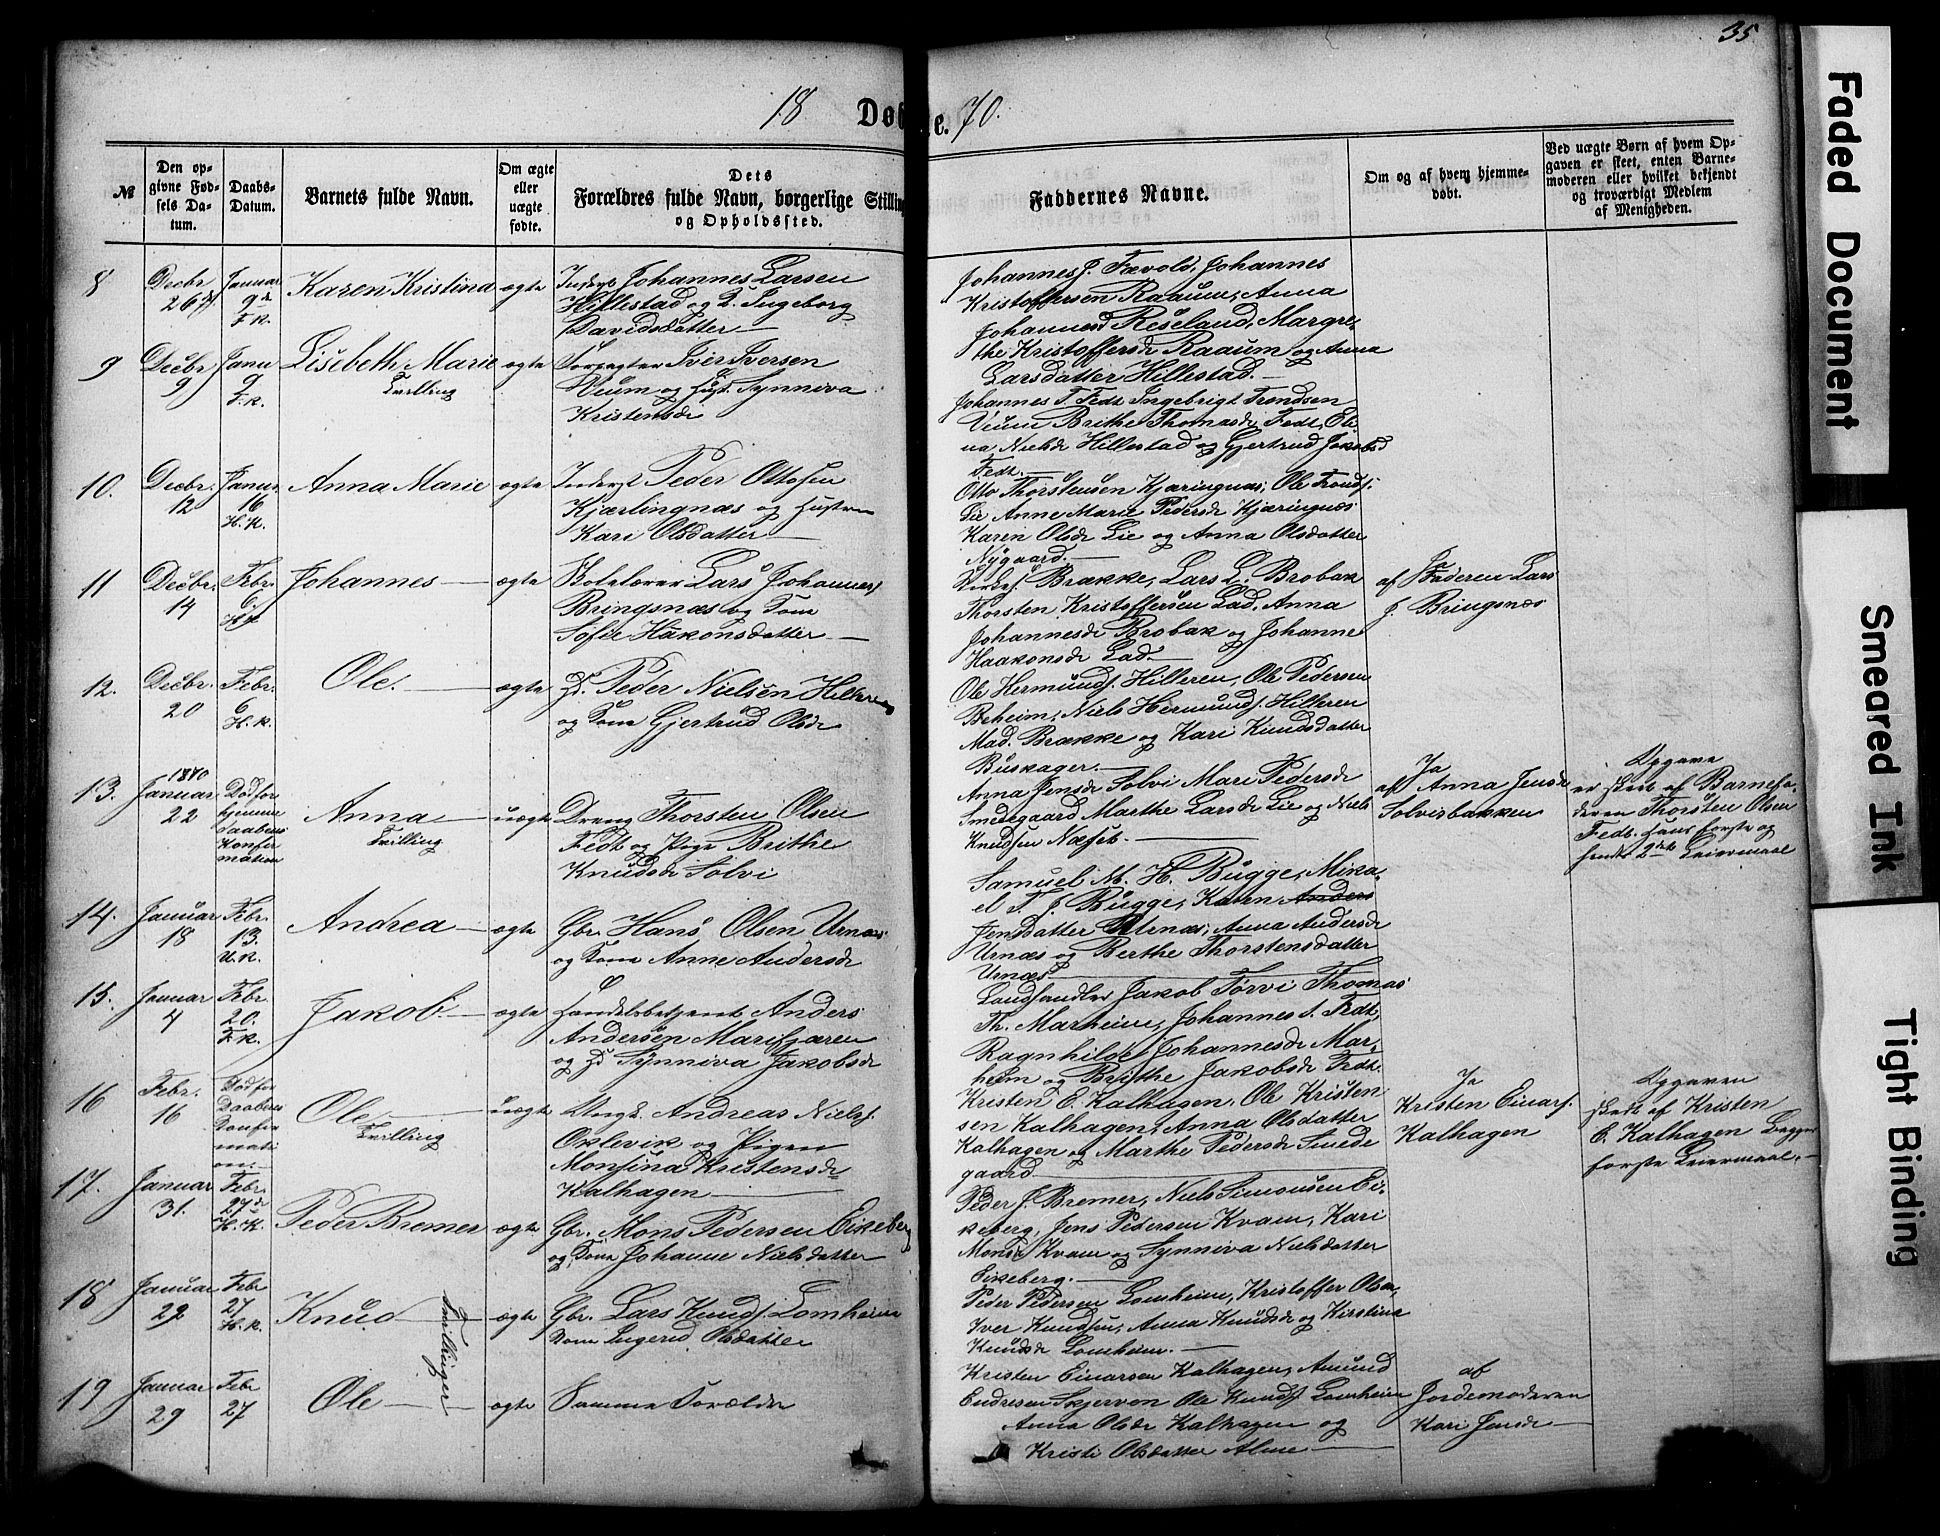 35
18 Døb
e. 70.
№
Den opgivne Fødsels Datum.
Daabs-Datum.
Barnets fulde Navn.
Om ægte eller uægte fødte.
Dets Forældres fulde Navn, borgerlige Stilling og Opholdssted.
Faddernes Navne.
Om og af hvem hjemmedøbt.
Ved uægte Børn af hvem Opgaven er skeet, enten Barnemoderen eller hvilket bekjendt og troværdigt Medlem af Menigheden.
8
Decbr 26
Januar 9 F. K.
Karen Kristina
ægte
Johannes Larsen
Hillestad og Ingeborg
Davidsdatter
Johannes J. Fævold, Johannes
Kristoffersen Raaum, Anna
Johannesd Reseland, Margre-
the Kristoffersd Raaum og Anna
Larsdatter Hillestad.
9
Decbr 9
Janu 9 F. K.
Lisebeth Marie
Tvilling
ægte
Forpagter Iver Iversen
Veum og Hust. Synneva
Kristensdr
Johannes T. Fedt Ingebrigt Trondsen
Veum Brithe Thomasdr Fedt, Eli
na Nielsdr Hillestad og Gjertrud Jakobsd
Fedt.
10.
Decbr. 12
Janur. 16 H. K.
Anna Marie
ægte
Inderst Peder Ottosen
Kjærlingnæs og Hustru
Kari Olsdatter
Otto Thorstensen Kjæringnæs, Ole Trondss.
Lie Anne Marie Pedersdr Kjæringnæs
Karen Olsdr Lie og Anna Olsdatter
Nygaard.
11
Decbr. 14
Febr. 6. H. K.
Johannes
ægte
Skolelærer Lars Johannes
Bringsnæs og Kone
Sofie Håkonsdatter
Brække, Lars L. Brobak
Thorsten Kristoffersen Lad, Anna
Johannesdr Brobak og Johanne
Haakonsdr Lad
af Faderen Lars
J. Bringsnæs
12.
Decbr. 20
Febr. 6 H. K.
Ole.
ægte
Peder Nielsen Hilleren
og Kone Gjertrud Olsdr
Ole Hermunds. Hilleren, Ole Pedersen
Beheim, Niels Hermunds. Hilleren
Mad. Brække og Kari Knudsdatter
Buskager.
13.
1870
Januar 22
Død før
hjemme
Daabens
Konfir
mation
Anna
Tvilling
uægte
Dreng Thorsten Olsen
Fedt og Pige Brithe
Knudsdr Solvi
Anna Jensdr Solvi Mari Pedersdr
Smedegaard Marthe Larsdr Lie og Niels
Knudsen Næset.
Ja
af Anna Jensdr
Solvisbakken
Opgave
er skeet af Barnefa-
deren Thorsten Olsen
Fedt. hans første og
hendes 2det Leiermaal
14.
Januar 18
Febr. 13. U. K.
Andrea
ægte
Gbr. Hans Olsen Urnæs
og Kone Anne Andersdr
Samuel M. H. Bugge, Mika-
el T. J. Bugge, Karen Anders
Jensdatter Urnæs, Anna Andersdr
Urnæs og Berthe Thorstensdatter
Urnæs
15.
Januar 4
Febr. 20. F. K.
Jakob.
ægte
Handelsbetjent Anders
Andersen Marifjæren
og Synneva Jakobsdr
Landhandler Jakob Tørvi Thomas
Th. Marheim, Johannes S. Fedt,
Ragnhilde Johannesdr Mar-
heim og Brithe Jakobsdr Fedt.
16
Febr. 16
Død før
Daabens
Konfir
mati
on.
Ole
Tvilling
uægte
Ungk. Andreas Nielss.
Oxlevik og Pigen
Monsina Kristensdr
Kalhagen
Kristen E. Kalhagen, Ole Kristen
sen Kalhagen, Anna Olsdatter
Kalhagen og Marthe Pedersdr Smede
gaard
Ja
Kristen Einars.
Kalhagen
Opgaven
skete af Kristen
E. Kalhagen Begges
første Leiermaal.
17.
Januar 31.
Febr. 27 H. K.
Peder Bremer
ægte
Gbr. Mons Pedersen Eikeberg
og Kone Johanne Nielsdatter
Peder J. Bremer, Niels Simonsen Ei-
keberg, Jens Pedersen Kvam, Kari
Monsdr Kvam og Synniva Nielsdatter
Eikeberg.
18
Januar 29
Febr 27 H. K.
Knud
Tvillinger
ægte
Gbr. Lars Knuds. Lomheim
Kone Ingerid Olsdatter
Peder Pedersen Lomheim, Kristoffer Olsen,
Iver Knudsen, Anna Knudsdr og Kirstina
Knudsdr Lomheim.
19
Januar 29
Febr 27
Ole
ægte
Samme Forældre
Kristen Einarsen Kalhagen, Amund
Endresen Skjervon Ole Knuds Lomheim
Anna Olsdr Kalhagen og
Kristi Olsdatter Alme
af
Jordemoderen
Kari Jensdr
Faded Document
Smeared Ink
Tight Binding